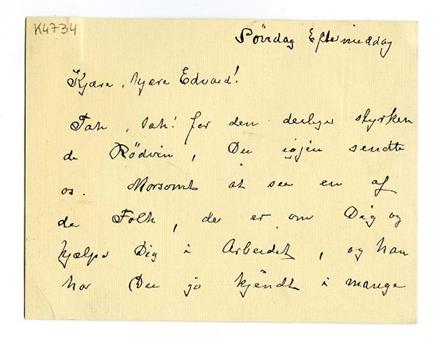 K4734
Søndag Eftermiddag
Kjære, kjære Edvard!
Tak, tak! for den deilige styrken
de Rødvin, Du igjen sendte
os. Morsomt at see en af
de Folk, der er om Dig og
hjælper Dig i Arbeidet, og han
har Du jo kjendt i mange